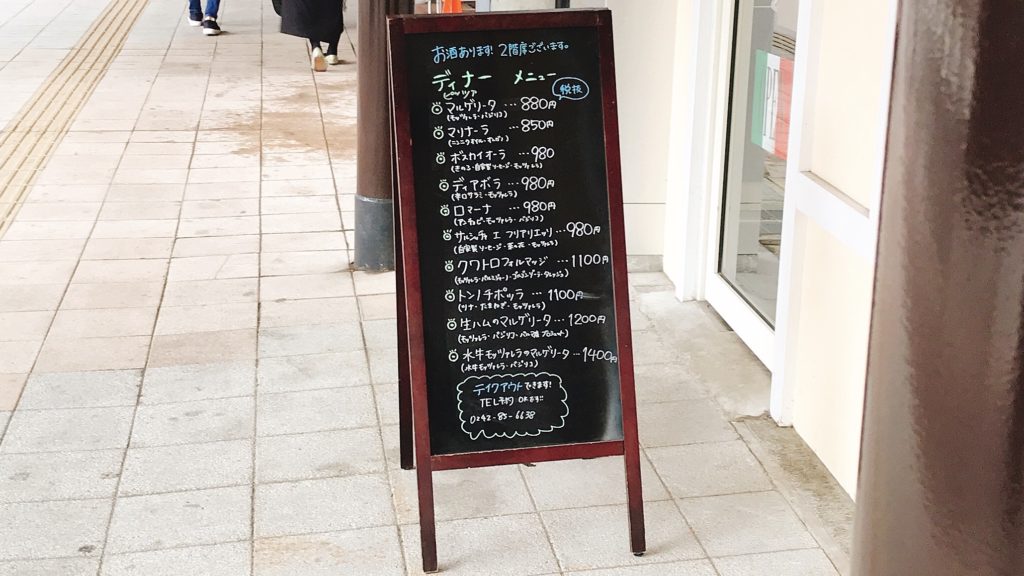 お酒あります! 2階席ございます。
ディナー メニュー
ピッツァ
税抜
マルゲリータ … 880円
(モッツァレラ・バジリコ)
マリナーラ … 850円
(ニンニクスライス・オレガノ)
ボスカイオーラ … 980
(きのこ・自家製ソーセージ・モッツァレラ)
ディアボラ … 980円
(辛口サラミ・モッツァレラ)
ロマーナ … 980円
(アンチョビ・モッツァレラ・バジリコ)
サルシッチャ エ フリアリエッリ … 980円
(自家製ソーセージ・菜の花・モッツァレラ)
クワトロフォルマッジ … 1100円
トンノチポッラ … 1100円
(ツナ・たまねぎ・モッツァレラ)
生ハムのマルゲリータ … 1200円
(モッツァレラ・バジリコ・パルマ産プロシュート)
水牛モッツァレラのマルゲリータ … 1400円
(水牛モッツァレラ・バジリコ)
テイクアウトできます!
TEL予約 OKです!!
0242-85-6638